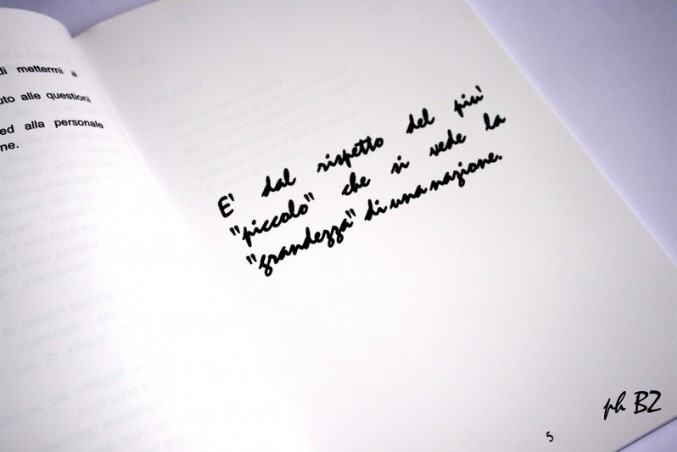 di mettermi a
alle questioni
ed alla personale
ne.
E' dal rispetto del più
"piccolo" che si vede la
"grandezza" di una nazione.
5
ph BZ